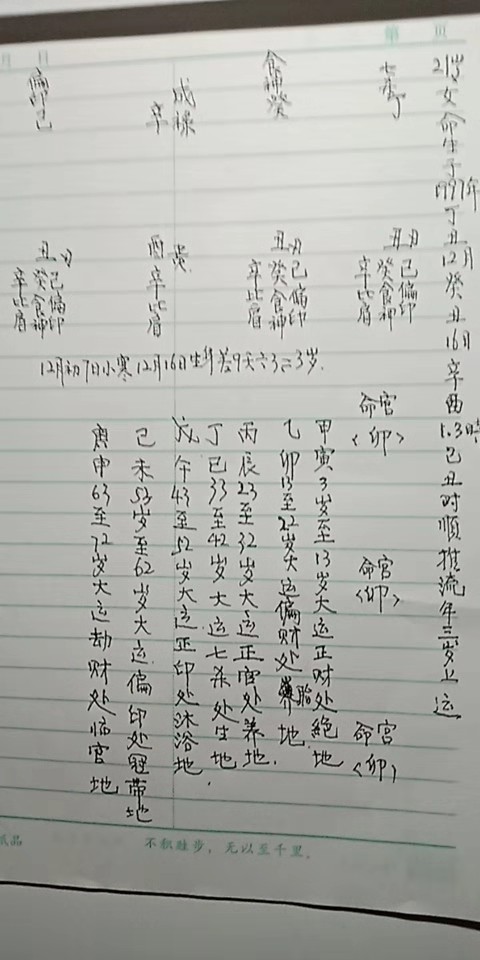 月 日
第 页
21岁女命生于1997年丁丑12月癸丑16日辛酉1.3時己丑时順推流年三岁上运
七杀丁
食神癸
成禄辛
偏印己
丑月
己偏印
癸食神
辛比肩
丑月
己偏印
癸食神
辛比肩
酉
辛比肩
丑月
己偏印
癸食神
辛比肩
12月初7日小寒12月16日生
命宫<卯>
命宫<卯>
命宫<卯>
甲寅3岁至13岁大运正财处绝地
乙卯13至22岁大运偏财处胎地
丙辰23至32岁大运正官处养地.
丁巳33至42岁大运七杀处生地.
戊午43至52岁大运正印处沐浴地
己未53岁至62岁大运偏印处冠带地
庚申63至72岁大运劫财处临官地
纸品
不积跬步，无以至千里.